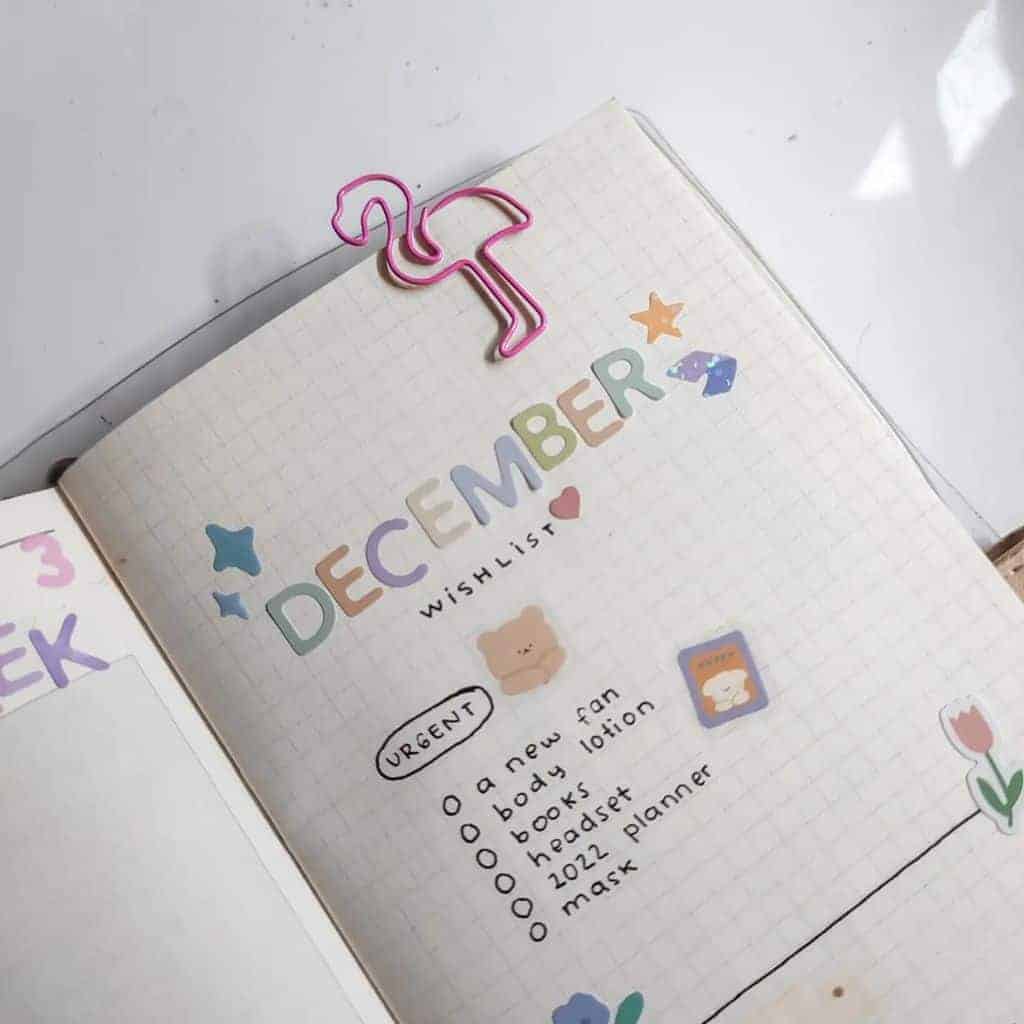 3
EEK
DECEMBER
WiSHLiST
URGENT
a new fan
body lotion
books
headset
2022 planner
mask